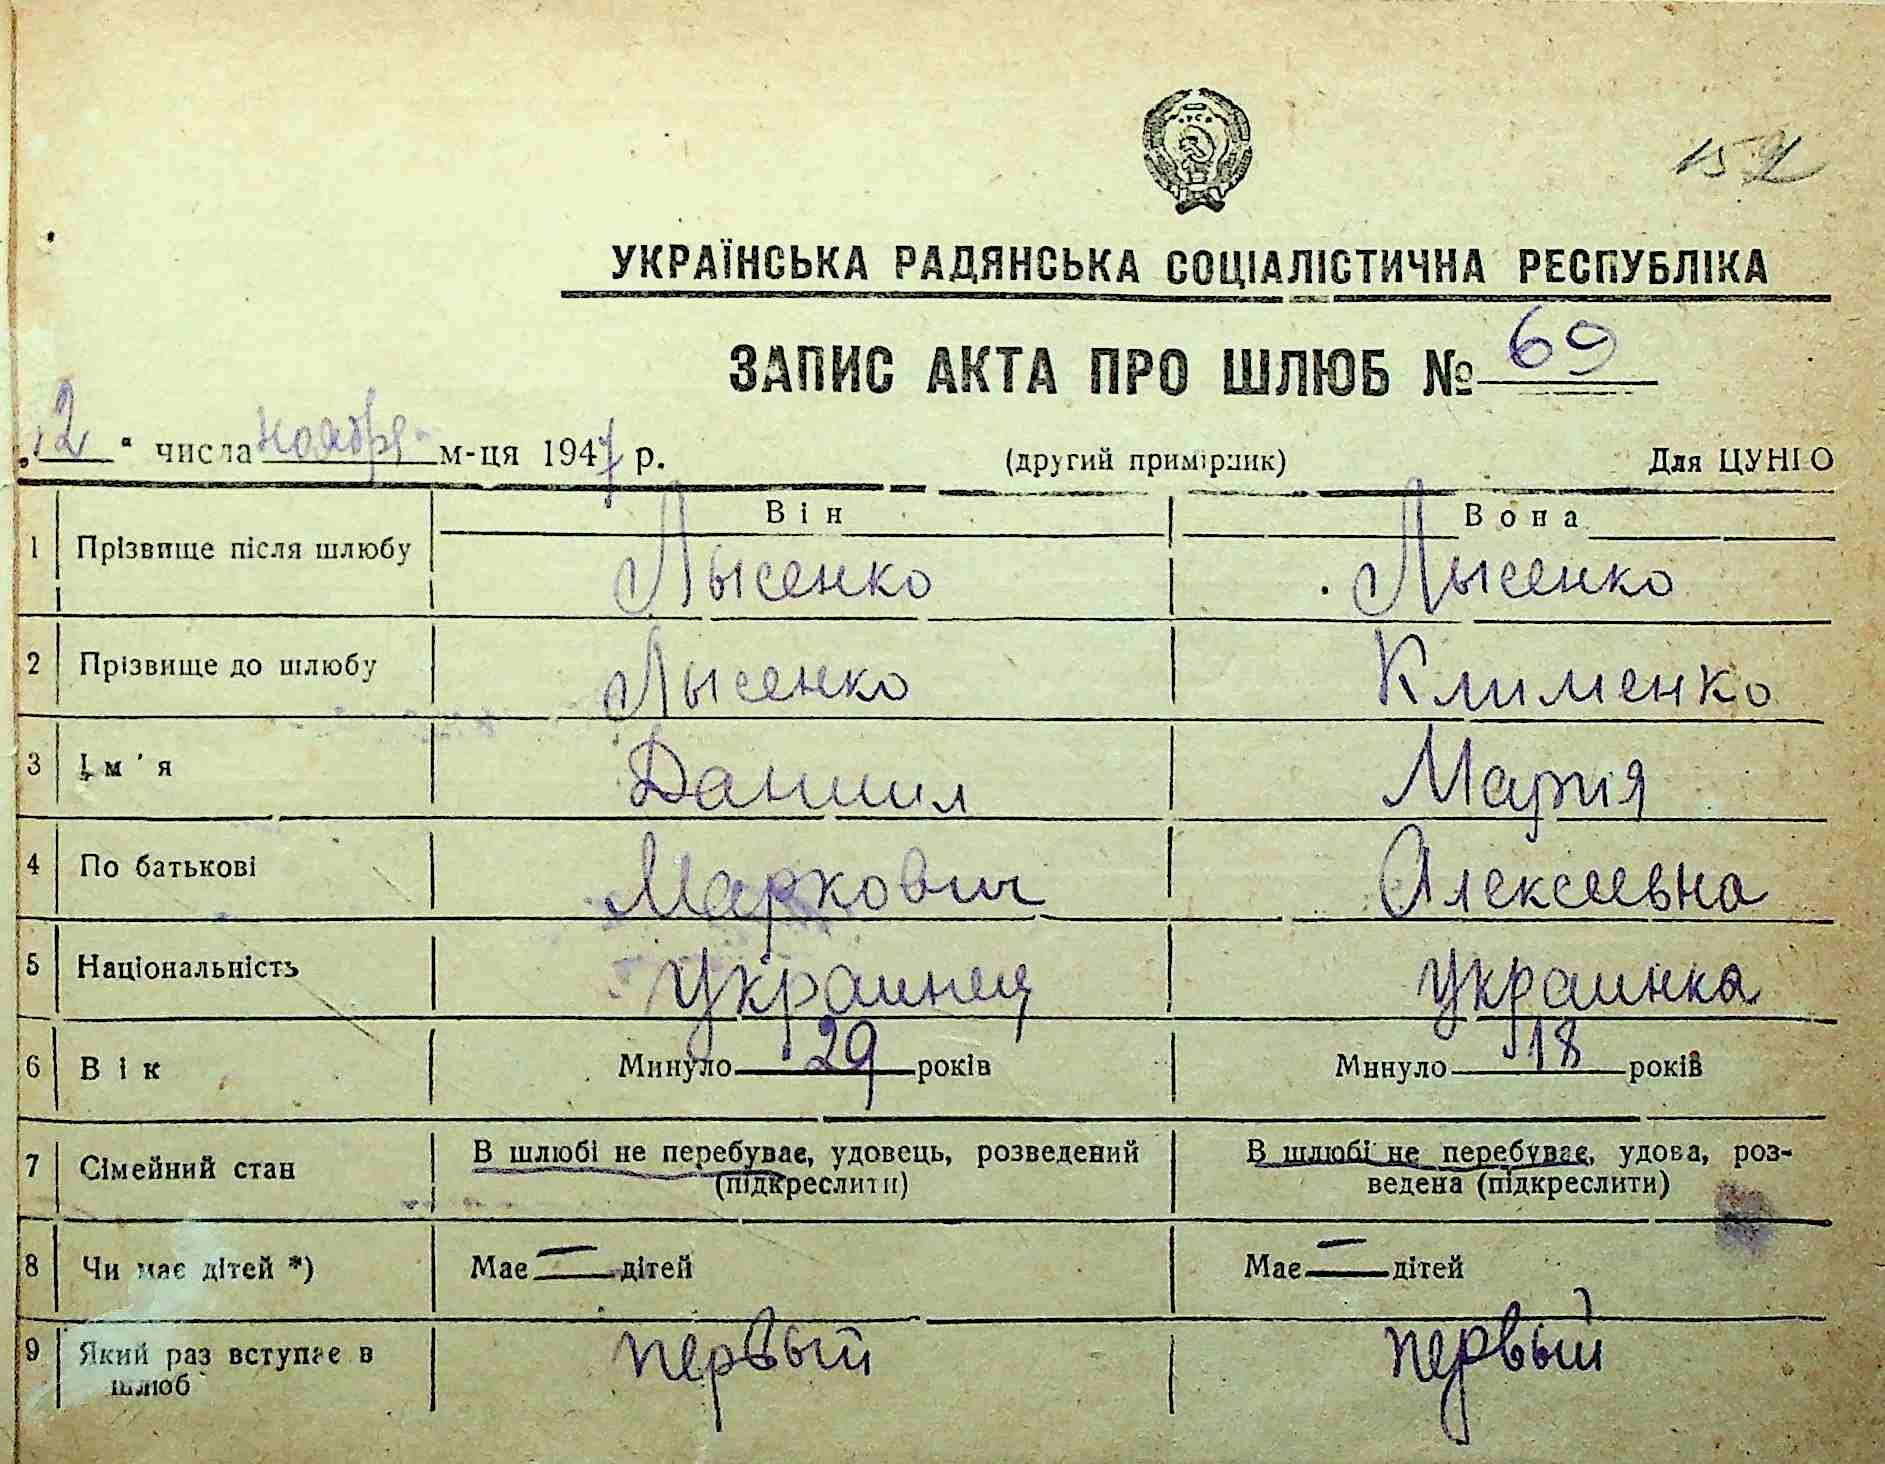 152
УКРАЇНСЬКА РАДЯНСЬКА СОЦІАЛІСТИЧНА РЕСПУБЛІКА
ЗАПИС АКТА ПРО ШЛЮБ № 69
„12“ числа ноября м-ця 1947 р. (другий примірник) Для ЦУНГО
Він Вона
1 Прізвище після шлюбу Лысенко Лысенко
2 Прізвище до шлюбу Лысенко Клименко
3 Ім'я Даниил Мария
4 По батькові Маркович Алексеевна
5 Національність Украинец Украинка
6 Вік Минуло 29 років Минуло 18 років
7 Сімейний стан В шлюбі не перебуває, удовець, розведений В шлюбі не перебуває, удова, роз-
(підкреслити) ведена (підкреслити)
8 Чи має дітей *) Має — дітей Має — дітей
9 Який раз вступає в первый первый
шлюб